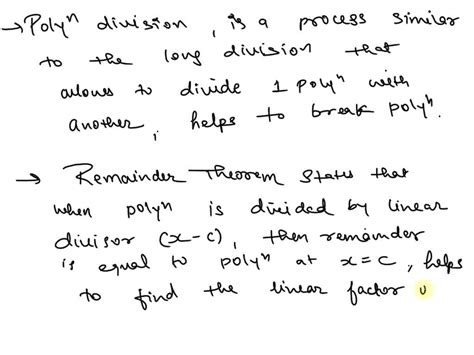 → Polyⁿ division, is a process similar
to the long division that
allows to divide 1 polyⁿ with
another, helps to break polyⁿ.
→ Remainder Theorem states that
when polyⁿ is divided by linear
divisor (x-c), then remainder
is equal to polyⁿ at x=c, helps
to find the linear factor